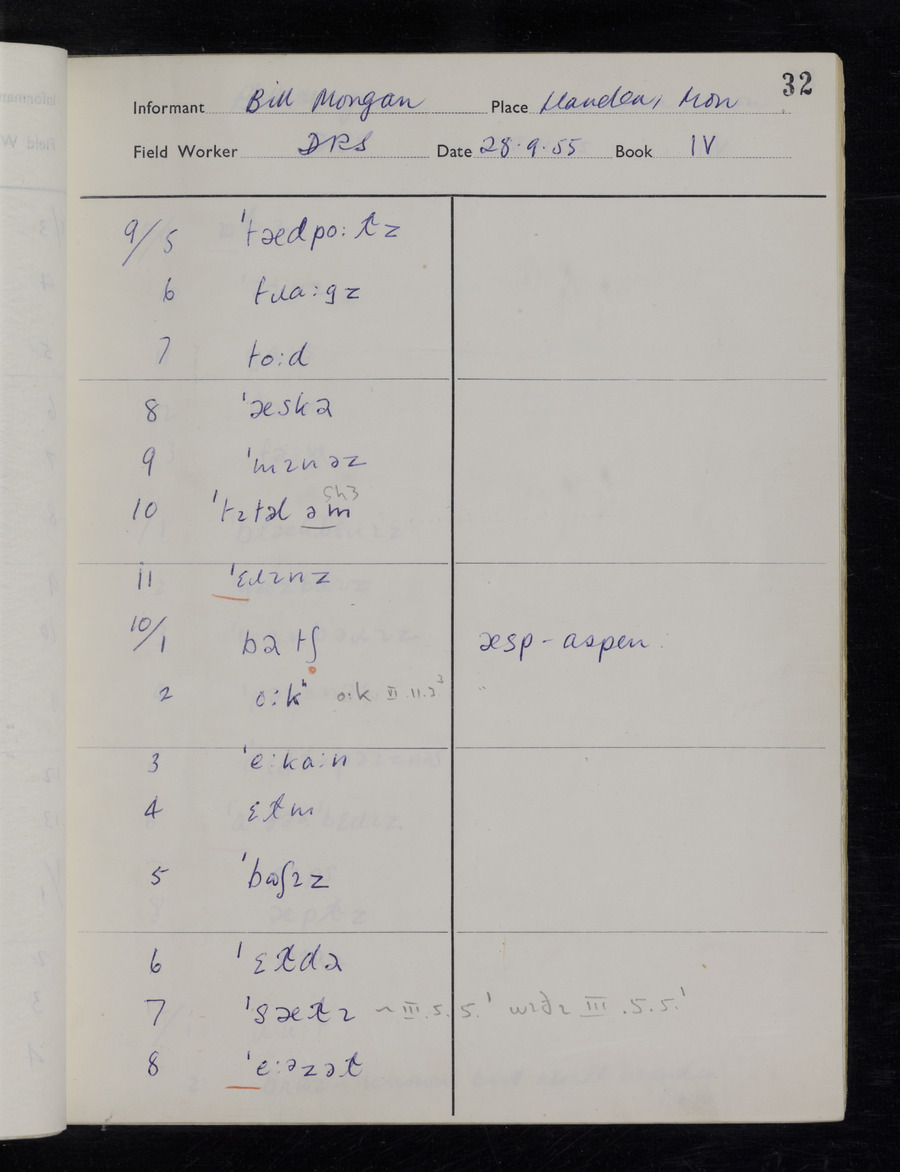 32
Informant Bill Morgan Place Llanellen, Mon
Field Worker DRS Date 28.9.55 Book IV
9/5 ˈtædpoːɫz
6 fɹɑːgz
7 toːd
8 ˈæskɚ
9 ˈmɪnəz
10 ˈtɪtəl əm Sh3
11 ˈɛɹɪnz
10/1 bɚtʃ æsp - aspen
2 oːkʰ oːk VI.11.3³
3 ˈeːkɑːn
4 ɛɫm
5 ˈbʊʃɪz
6 ˈɛɫdɚ
7 ˈsæɫɪ ~ III.5.5.¹ wɪðɪ III.5.5.¹
8 ˈeːəzəɫ